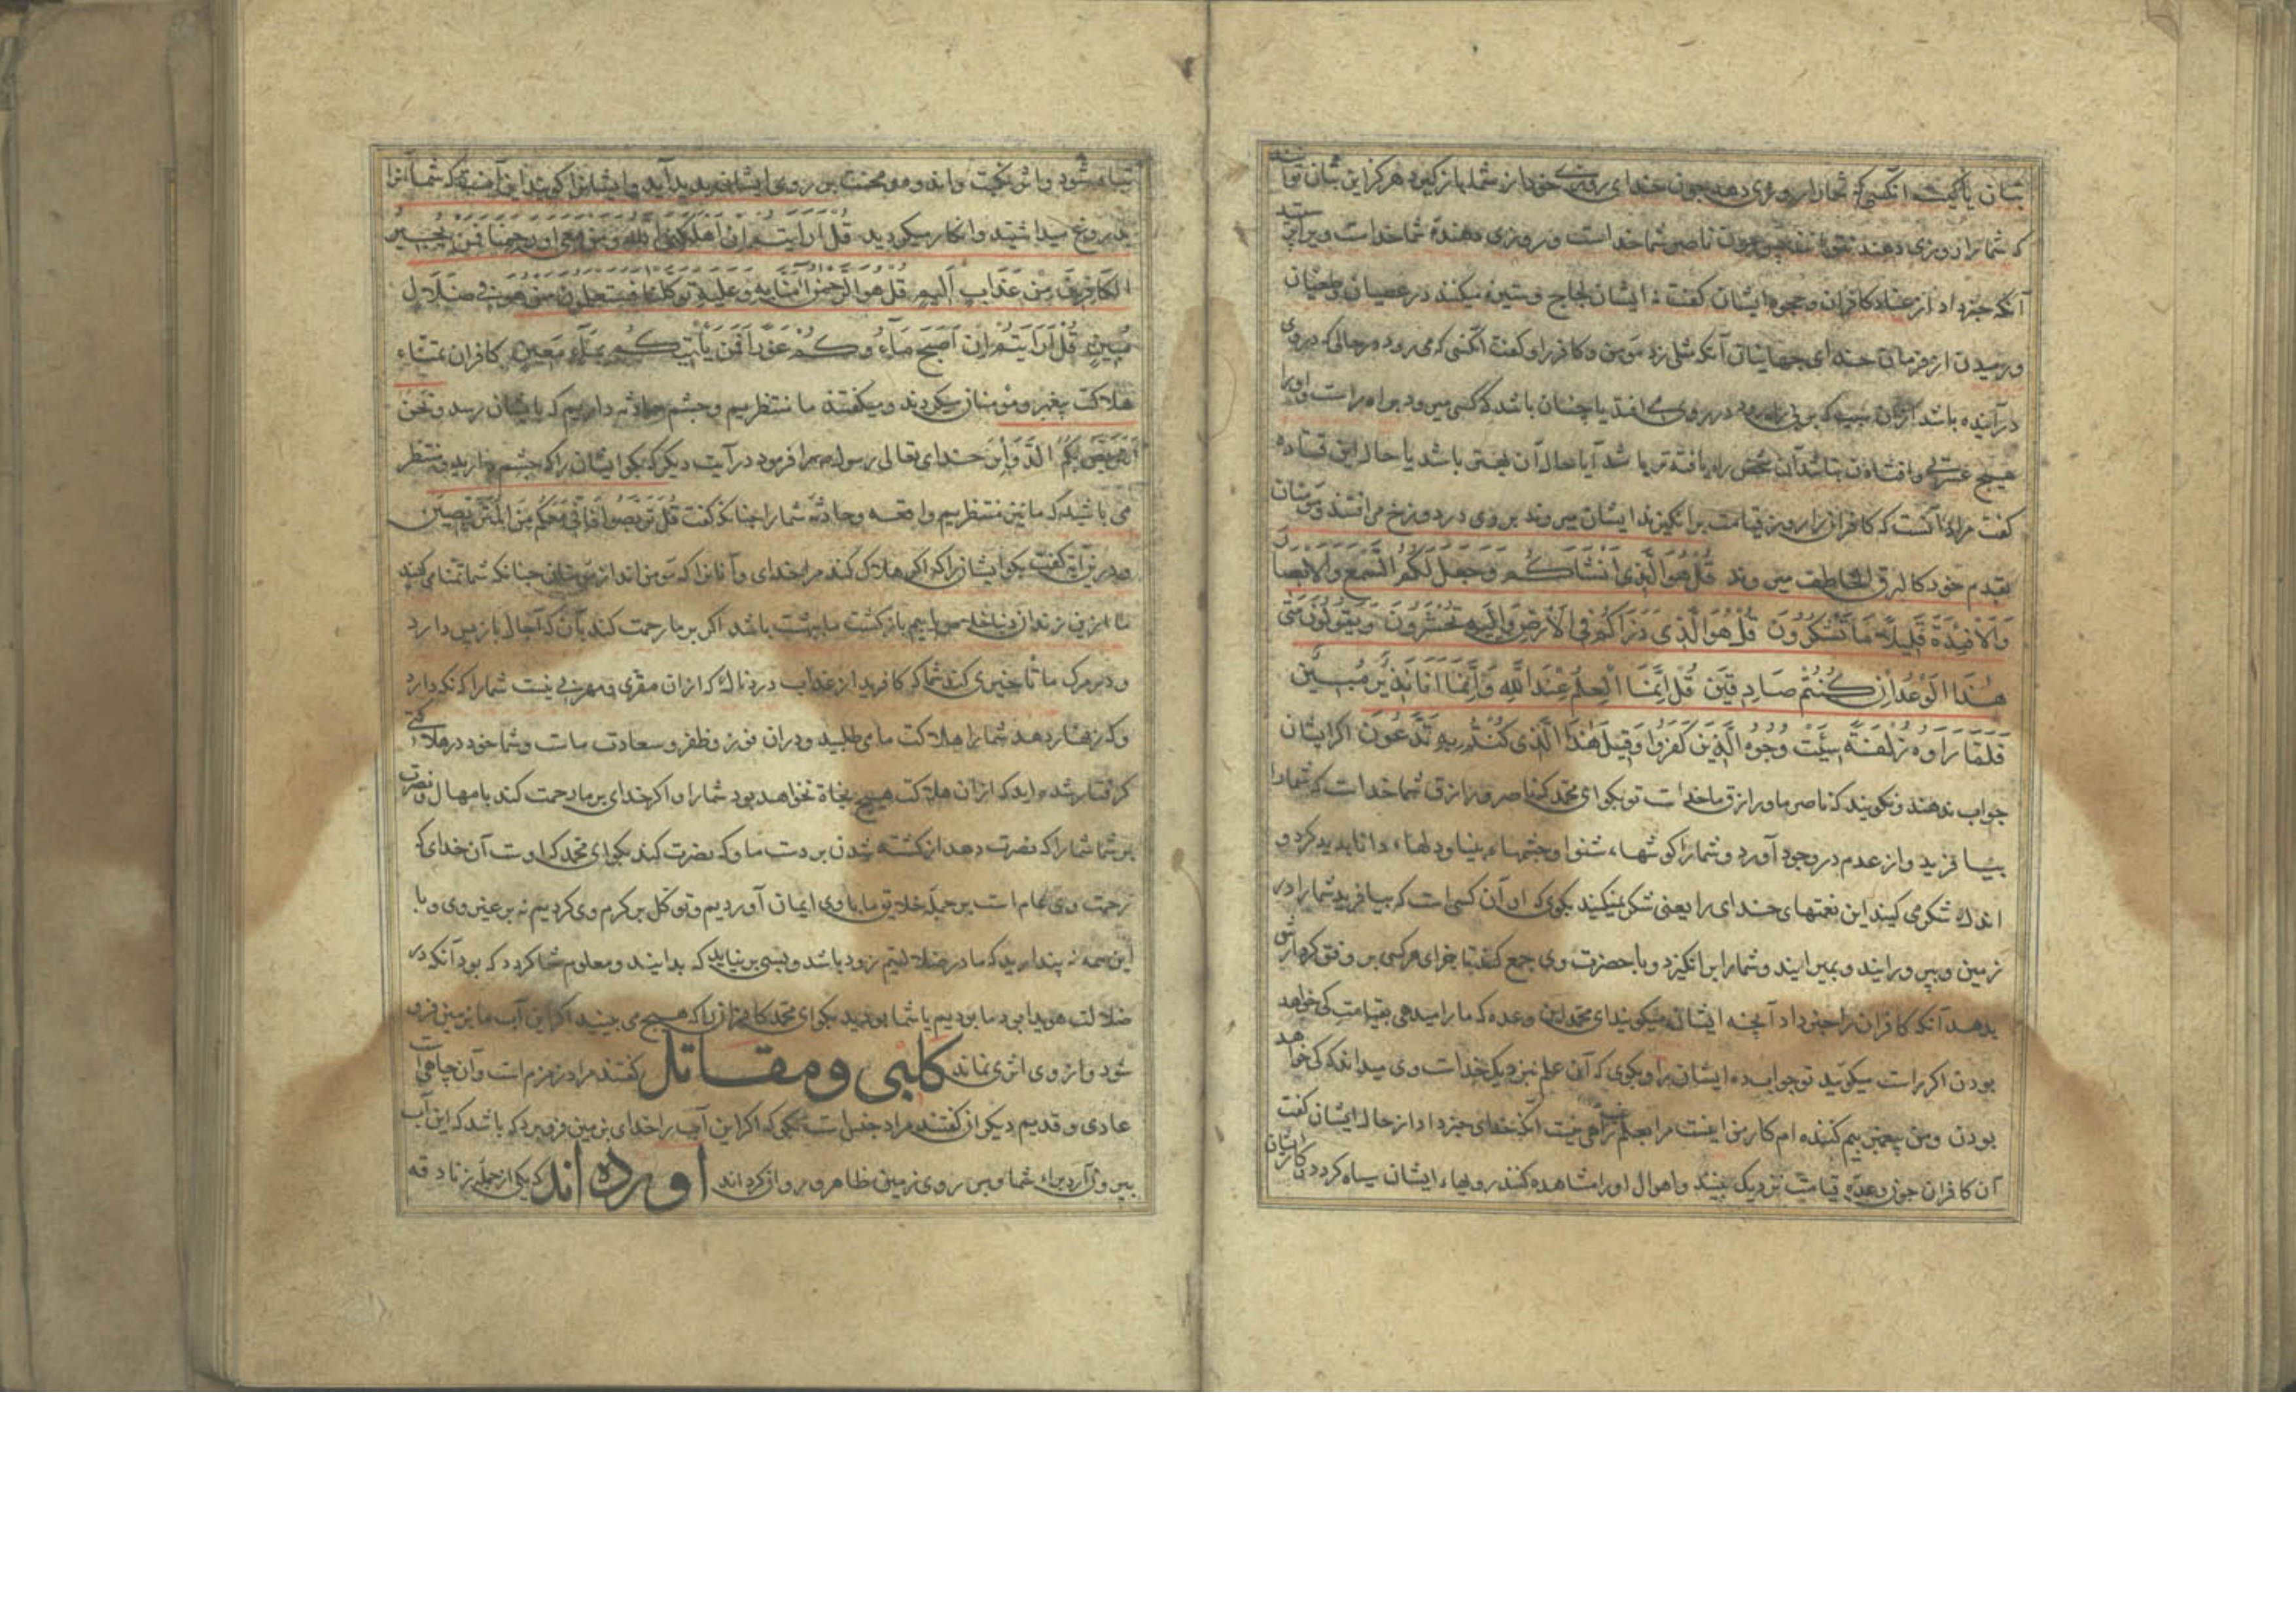 بتان یا کیست آنکسی که شما را روزی دهد چون خدای روزی خود از شما باز گیرد هرگز این بتان توانند
که شما را روزی دهند نتوانند پس چون ناصر شما خداست و روزی دهندهٔ شما خداست و پرستید
آنکه خبر داد از عناد کافران و جحود ایشان گفت نه ایشان لجاج و ستیزه میکنند در عصیان و طغیان
و رمیدن از فرمان خدای جهانیان آنکه مثل زد مؤمن و کافر را و گفت آنکسی که می رود در حالی که در روی
در آینده باشد از آن سبب که بر بی راه رود در روی می افتد یا چنان باشد که کسی می رود بر راه راست و او را
هیچ عثرتی و افتادن نباشد آن شخص راه یافته تر باشد آیا حال آن بهتر باشد یا حال این قتاده
گفت مراد آنست که کافران را روز قیامت برانگیزند ایشان میروند بروی در دوزخ می افتند و مؤمنان
بقدم خود کالبرق الخاطف میروند قُلْ هُوَ الَّذِي أَنْشَأَكُمْ وَجَعَلَ لَكُمُ السَّمْعَ وَالْأَبْصَارَ
وَالْأَفْئِدَةَ قَلِيلًا مَا تَشْكُرُونَ قُلْ هُوَ الَّذِي ذَرَأَكُمْ فِي الْأَرْضِ وَإِلَيْهِ تُحْشَرُونَ وَيَقُولُونَ مَتَى
هَذَا الْوَعْدُ إِنْ كُنْتُمْ صَادِقِينَ قُلْ إِنَّمَا الْعِلْمُ عِنْدَ اللَّهِ وَإِنَّمَا أَنَا نَذِيرٌ مُبِينٌ
فَلَمَّا رَأَوْهُ زُلْفَةً سِيئَتْ وُجُوهُ الَّذِينَ كَفَرُوا وَقِيلَ هَذَا الَّذِي كُنْتُمْ بِهِ تَدَّعُونَ اگر ایشان
جواب ندهند و نگویند که ناصر ما و رازق ما خداست تو بگو ای محمد که ناصر و رازق شما خداست که شما را
بیافرید و از عدم در وجود آورد و شما را گوشهاء شنوا و چشمهاء بینا و دلهاء دانا بدید کرد و
اندک شکر می کنید این نعمتهای خدای را یعنی شکر نمیکنید بگوی که او آن کسی است که بیافرید شما را در
زمین و بپرورانید و بمیرانید و شما را برانگیزد و با حضرت وی جمع کند تا جزای هر کسی بر وفق کردارش
بدهد آنکه کافران را خبر داد آنچه ایشان میگویند ای محمد این وعده که ما را میدهی بقیامت کی خواهد
بودن اگر راست میگویید تو جواب ده ایشان را و بگوی که آن علم نزدیک خداست وی میداند که کی خواهد
بودن و من پیغمبر بیم کننده ام کار من اینست مرا بعلم راهی نیست آنکه خدای خبر داد از حال ایشان گفت
آن کافران چون وعدهٔ قیامت نزدیک ببینند و اهوال او را مشاهده کنند رویهاء ایشان سیاه گردد و کار ایشان
تباه شود و اثر نکبت و اندوه و محنت بر روی ایشان پدید آید و ایشانرا گویند این آنست که شما آنرا
بدروغ میداشتید و انکار میکردید قُلْ أَرَأَيْتُمْ إِنْ أَهْلَكَنِيَ اللَّهُ وَمَنْ مَعِيَ أَوْ رَحِمَنَا فَمَنْ يُجِيرُ
الْكَافِرِينَ مِنْ عَذَابٍ أَلِيمٍ قُلْ هُوَ الرَّحْمَنُ آمَنَّا بِهِ وَعَلَيْهِ تَوَكَّلْنَا فَسَتَعْلَمُونَ مَنْ هُوَ فِي ضَلَالٍ
مُبِينٍ قُلْ أَرَأَيْتُمْ إِنْ أَصْبَحَ مَاؤُكُمْ غَوْرًا فَمَنْ يَأْتِيكُمْ بِمَاءٍ مَعِينٍ کافران تمنّاء
هلاکت پیغمبر و مؤمنان میکردند و میگفتند ما منتظریم و چشم حادثه داریم که بایشان رسد و نحن
نتربص بکم الدوائر خدای تعالی رسول را فرمود در آیت دیگر که بگو ایشان را که چشم دارید و منتظر
می باشید که ما نیز منتظریم واقعه و حادثهٔ شما را چنانکه گفت قُلْ تَرَبَّصُوا فَإِنِّي مَعَكُمْ مِنَ الْمُتَرَبِّصِينَ
و در این آیت گفت بگو ایشان را که اگر هلاک کند مرا خدای و آنانرا که با من اند از مؤمنان چنانکه شما تمنا می کنید
ما ازین زندان دنیا خلاص یابیم بازگشت ما بهشت باشد اگر بر ما رحمت کند بآن که آجال باز پس دارد
و در مرگ ما تأخیری کند شما که کافرید از عذاب دردناک که از آن مفری و مهربی نیست شما را که نگه دارد
و که زنهار دهد شما را هلاکت ما می طلبید و در آن فوز و ظفر و سعادت ماست و شما خود در هلاکتی
گرفتار شده اید که از آن هلاکت هیچ نجاة نخواهد بود شما را و اگر خدای بر ما رحمت کند بامهال و نصرت
بر شما شما را که نصرت دهد از کشته شدن بر دست ما و که نصرت کند بگو ای محمد که اوست آن خدای که
رحمت وی عام است بر جملهٔ خلایق ما باوی ایمان آوردیم و توکل بر کرم وی کردیم نه بر غیر وی و با
این همه نه پندارید که ما در ضلالتیم زود باشد و بسی بر نیاید که بدانند و معلوم شما گردد که بود آنکه در
ضلالت هویدا بود ما بودیم یا شما بودید بگو ای محمد کافران را که هیچ می بینید اگر این آب ما بزمین فرو
شود و از وی اثری نماند کلبی و مقاتل گفتند مراد زمزم است و آن چاهی است
عادی و قدیم دیگران گفتند مراد جنس است میگوید که اگر این آب را خدای بزمین فرو برد که باشد که این آب
بیرون آرد براء شما و بر روی زمین ظاهر و روان گرداند اورده اند که یکی از جملهٔ زنادقه